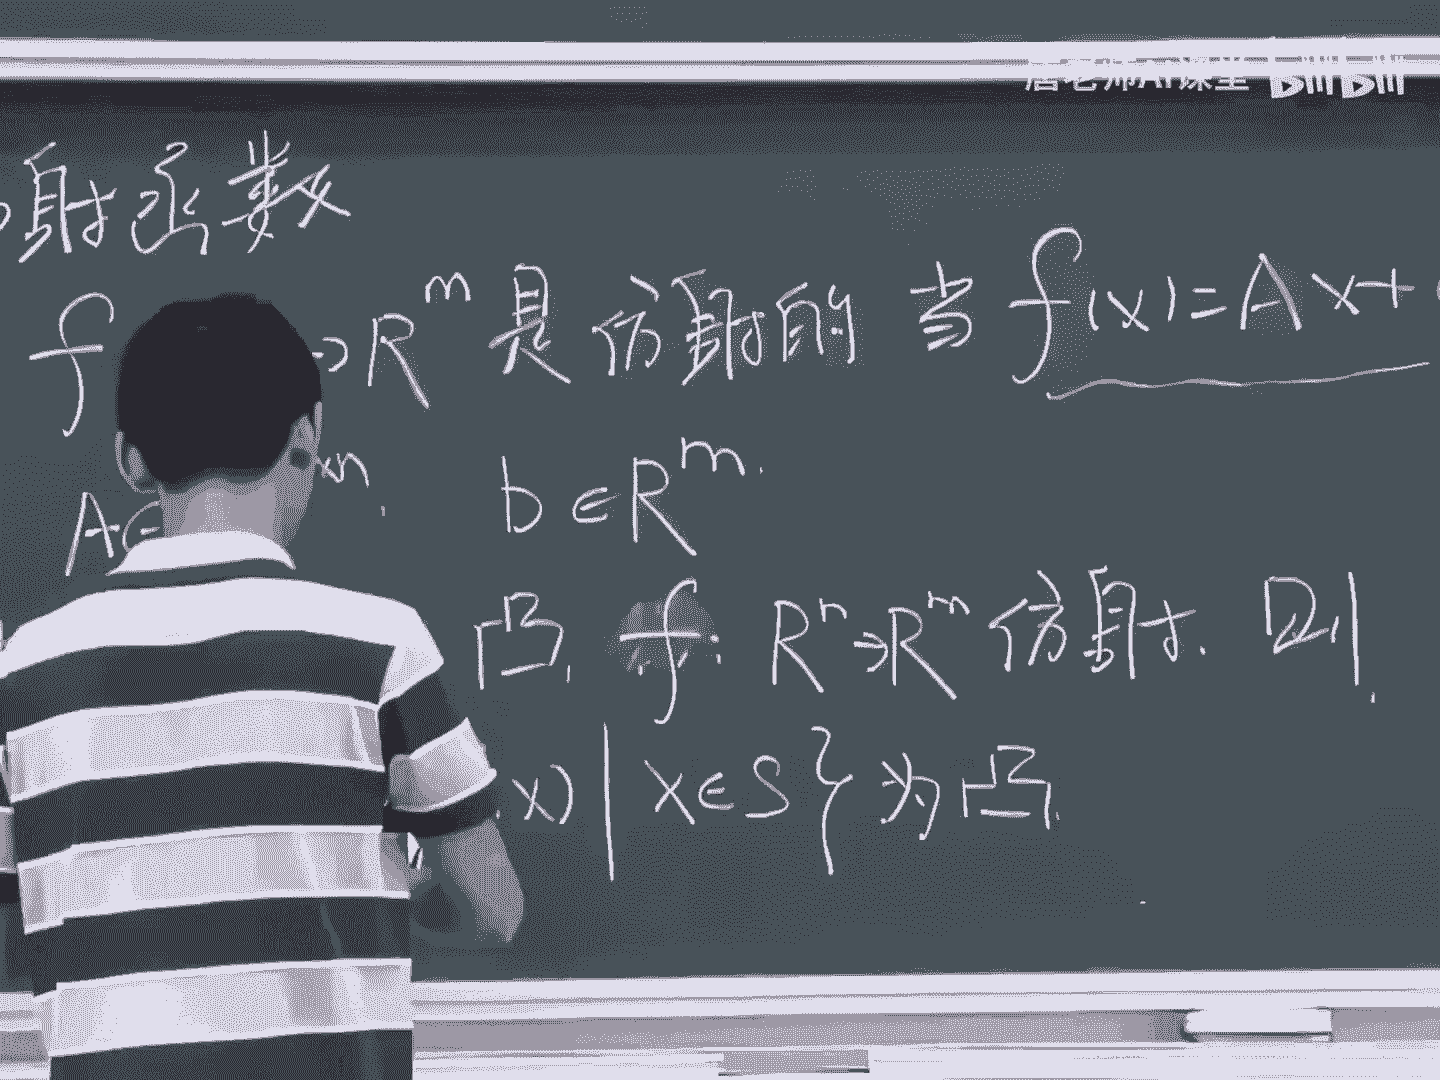 唐老师AI课堂 bilibili
射函数
f →Rᵐ 是仿射的 当 f(x)=Ax+
A∈ ×n. b∈Rᵐ.
凸, f: Rⁿ→Rᵐ 仿射. 则.
x) | x∈S} 为凸.